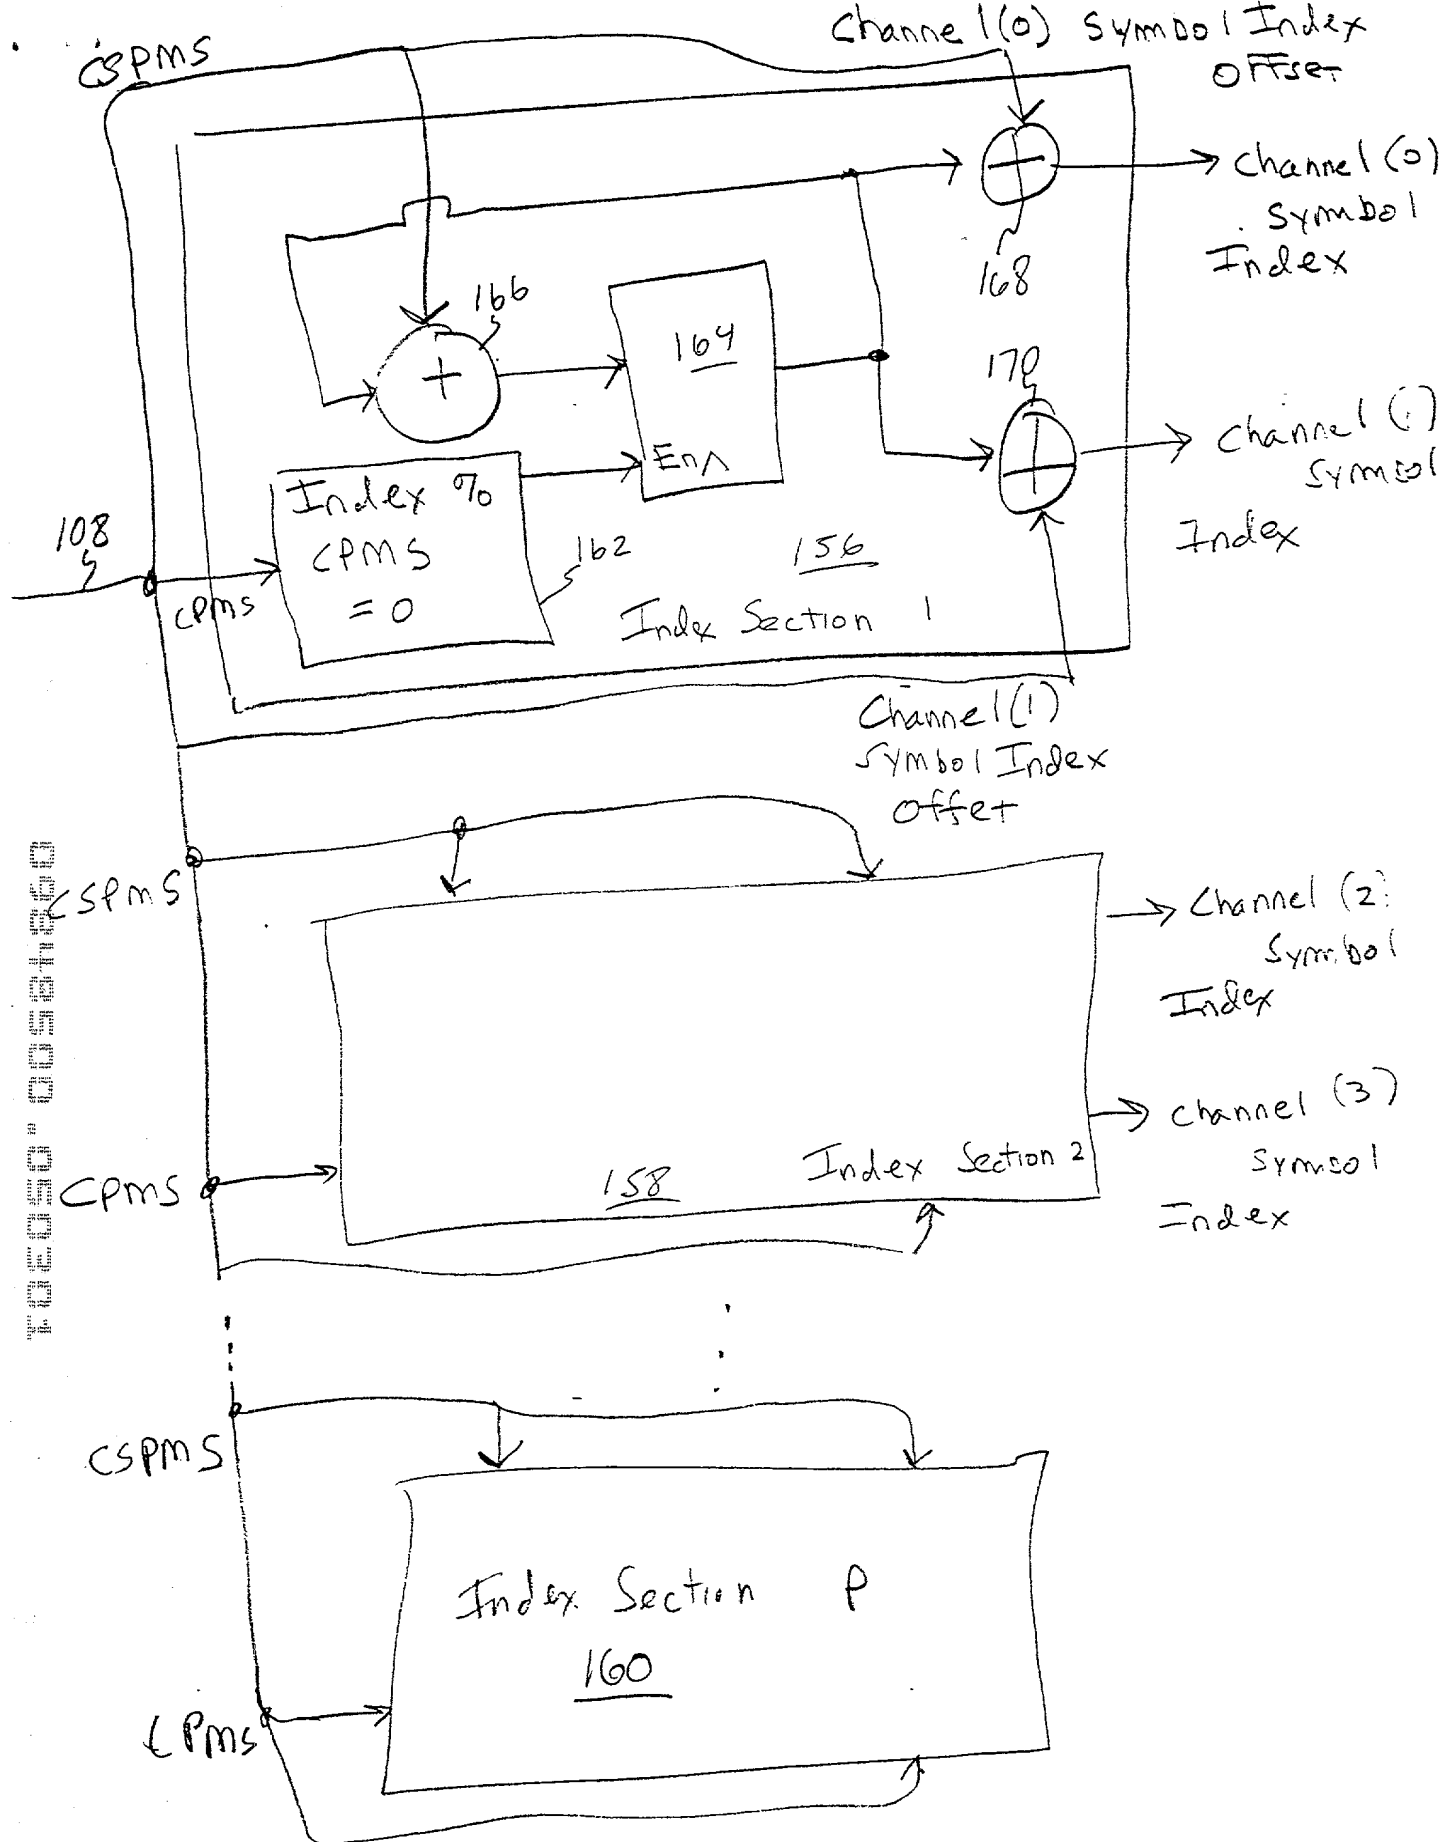 CSPMS
Channel (0) Symbol Index
Offset
Channel (0)
Symbol
Index
168
166
164
170
Ena
Channel (1)
Symbol
Index
Index %
CPMS
= 0
108
162
156
CPMS
Index Section 1
Channel (1)
Symbol Index
Offet
CSPMS
Channel (2)
Symbol
Index
Channel (3)
Symbol
Index
CPMS
158
Index Section 2
CSPMS
Index Section P
160
CPMS